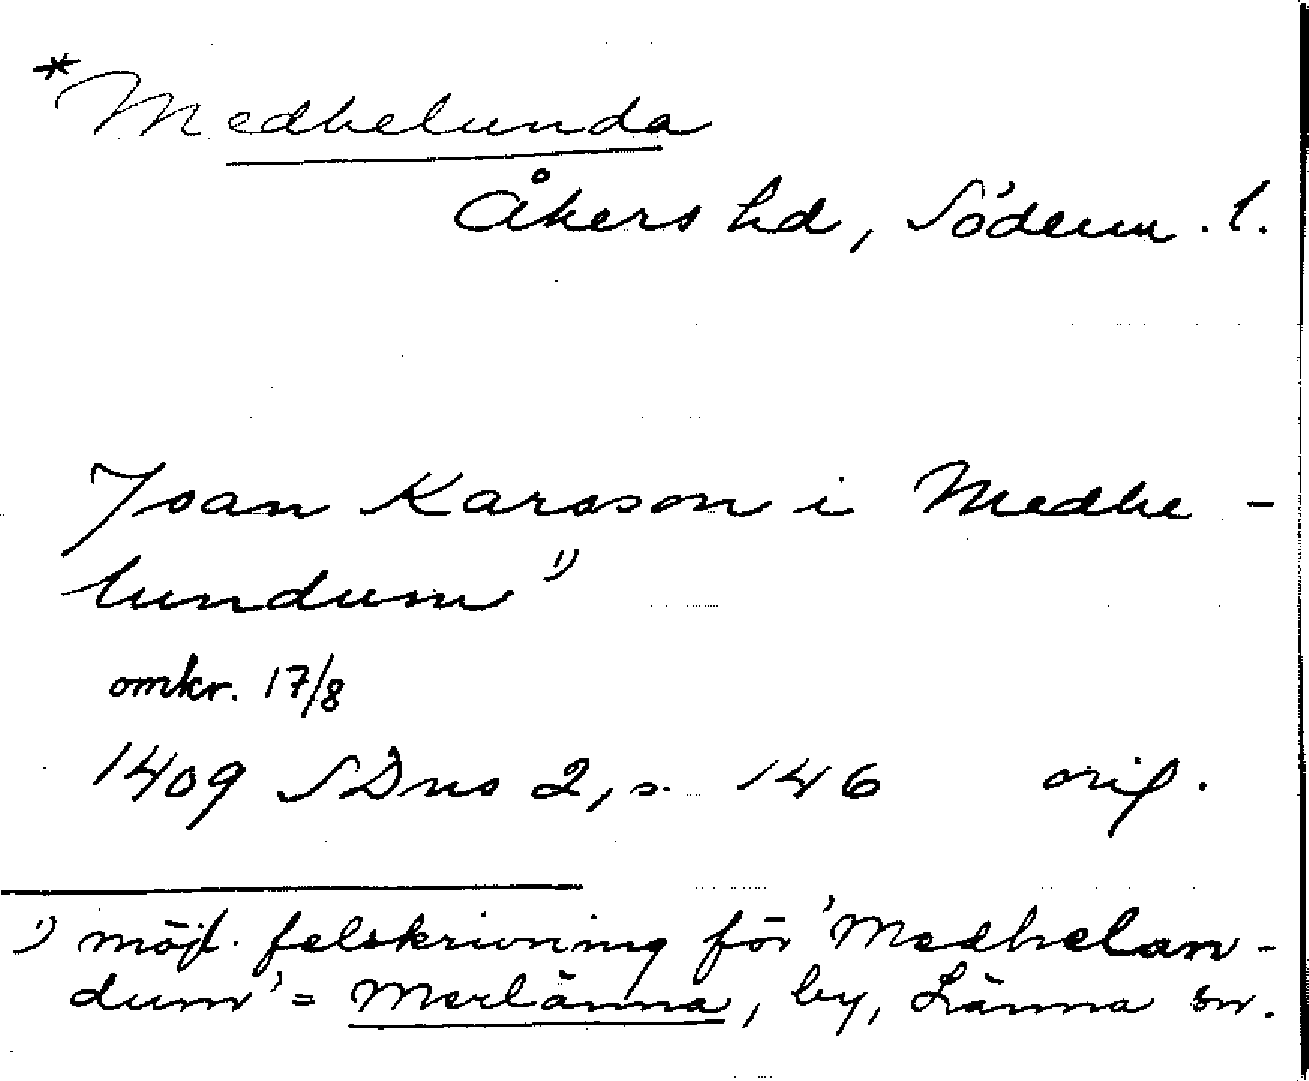 *Medhelunda
Åkers hd, Söderm. l.
Joan Karsson i Medhe-
lundum 1)
omkr. 17/8
1409 SDns 2, s. 146 orig.
1) möjl. felskrivning för 'Medhelan-
dum' = Merlänna, by, Länna sn.